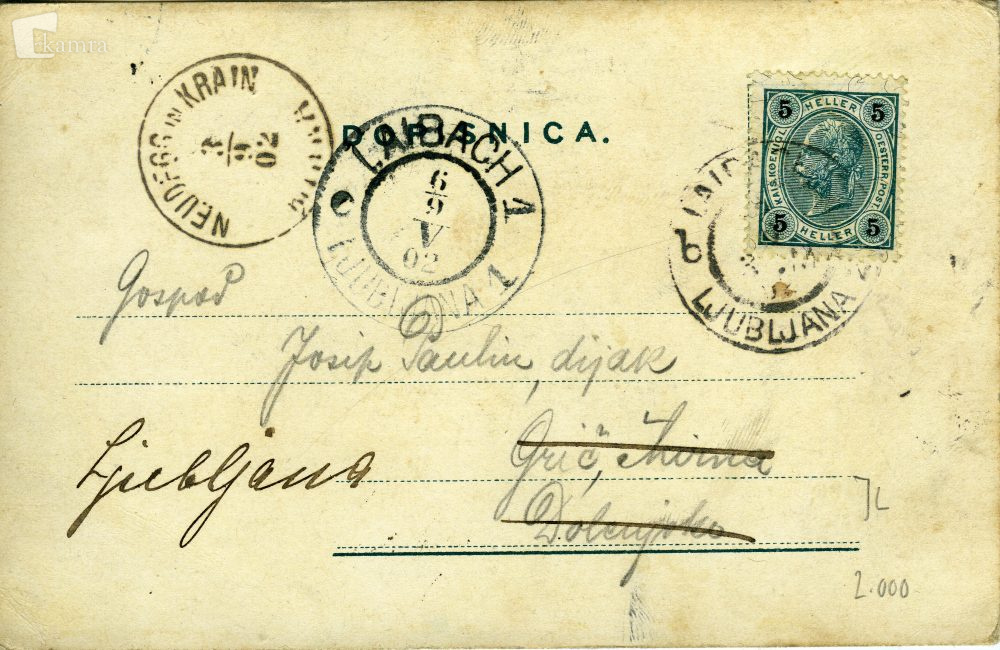 kamra
NEUDEGG IN KRAIN
9
02
DOPISNICA.
LAIBACH 1
6
9
V
02
LJUBLJANA 1
5 HELLER 5
KAIS. KOENIGL. OESTERR. POST
5 HELLER 5
b
LJUBLJANA
Gospod
Josip Paulin, dijak
Ljubljana
Grič, Mirna
Dolenjsko
L
2.000